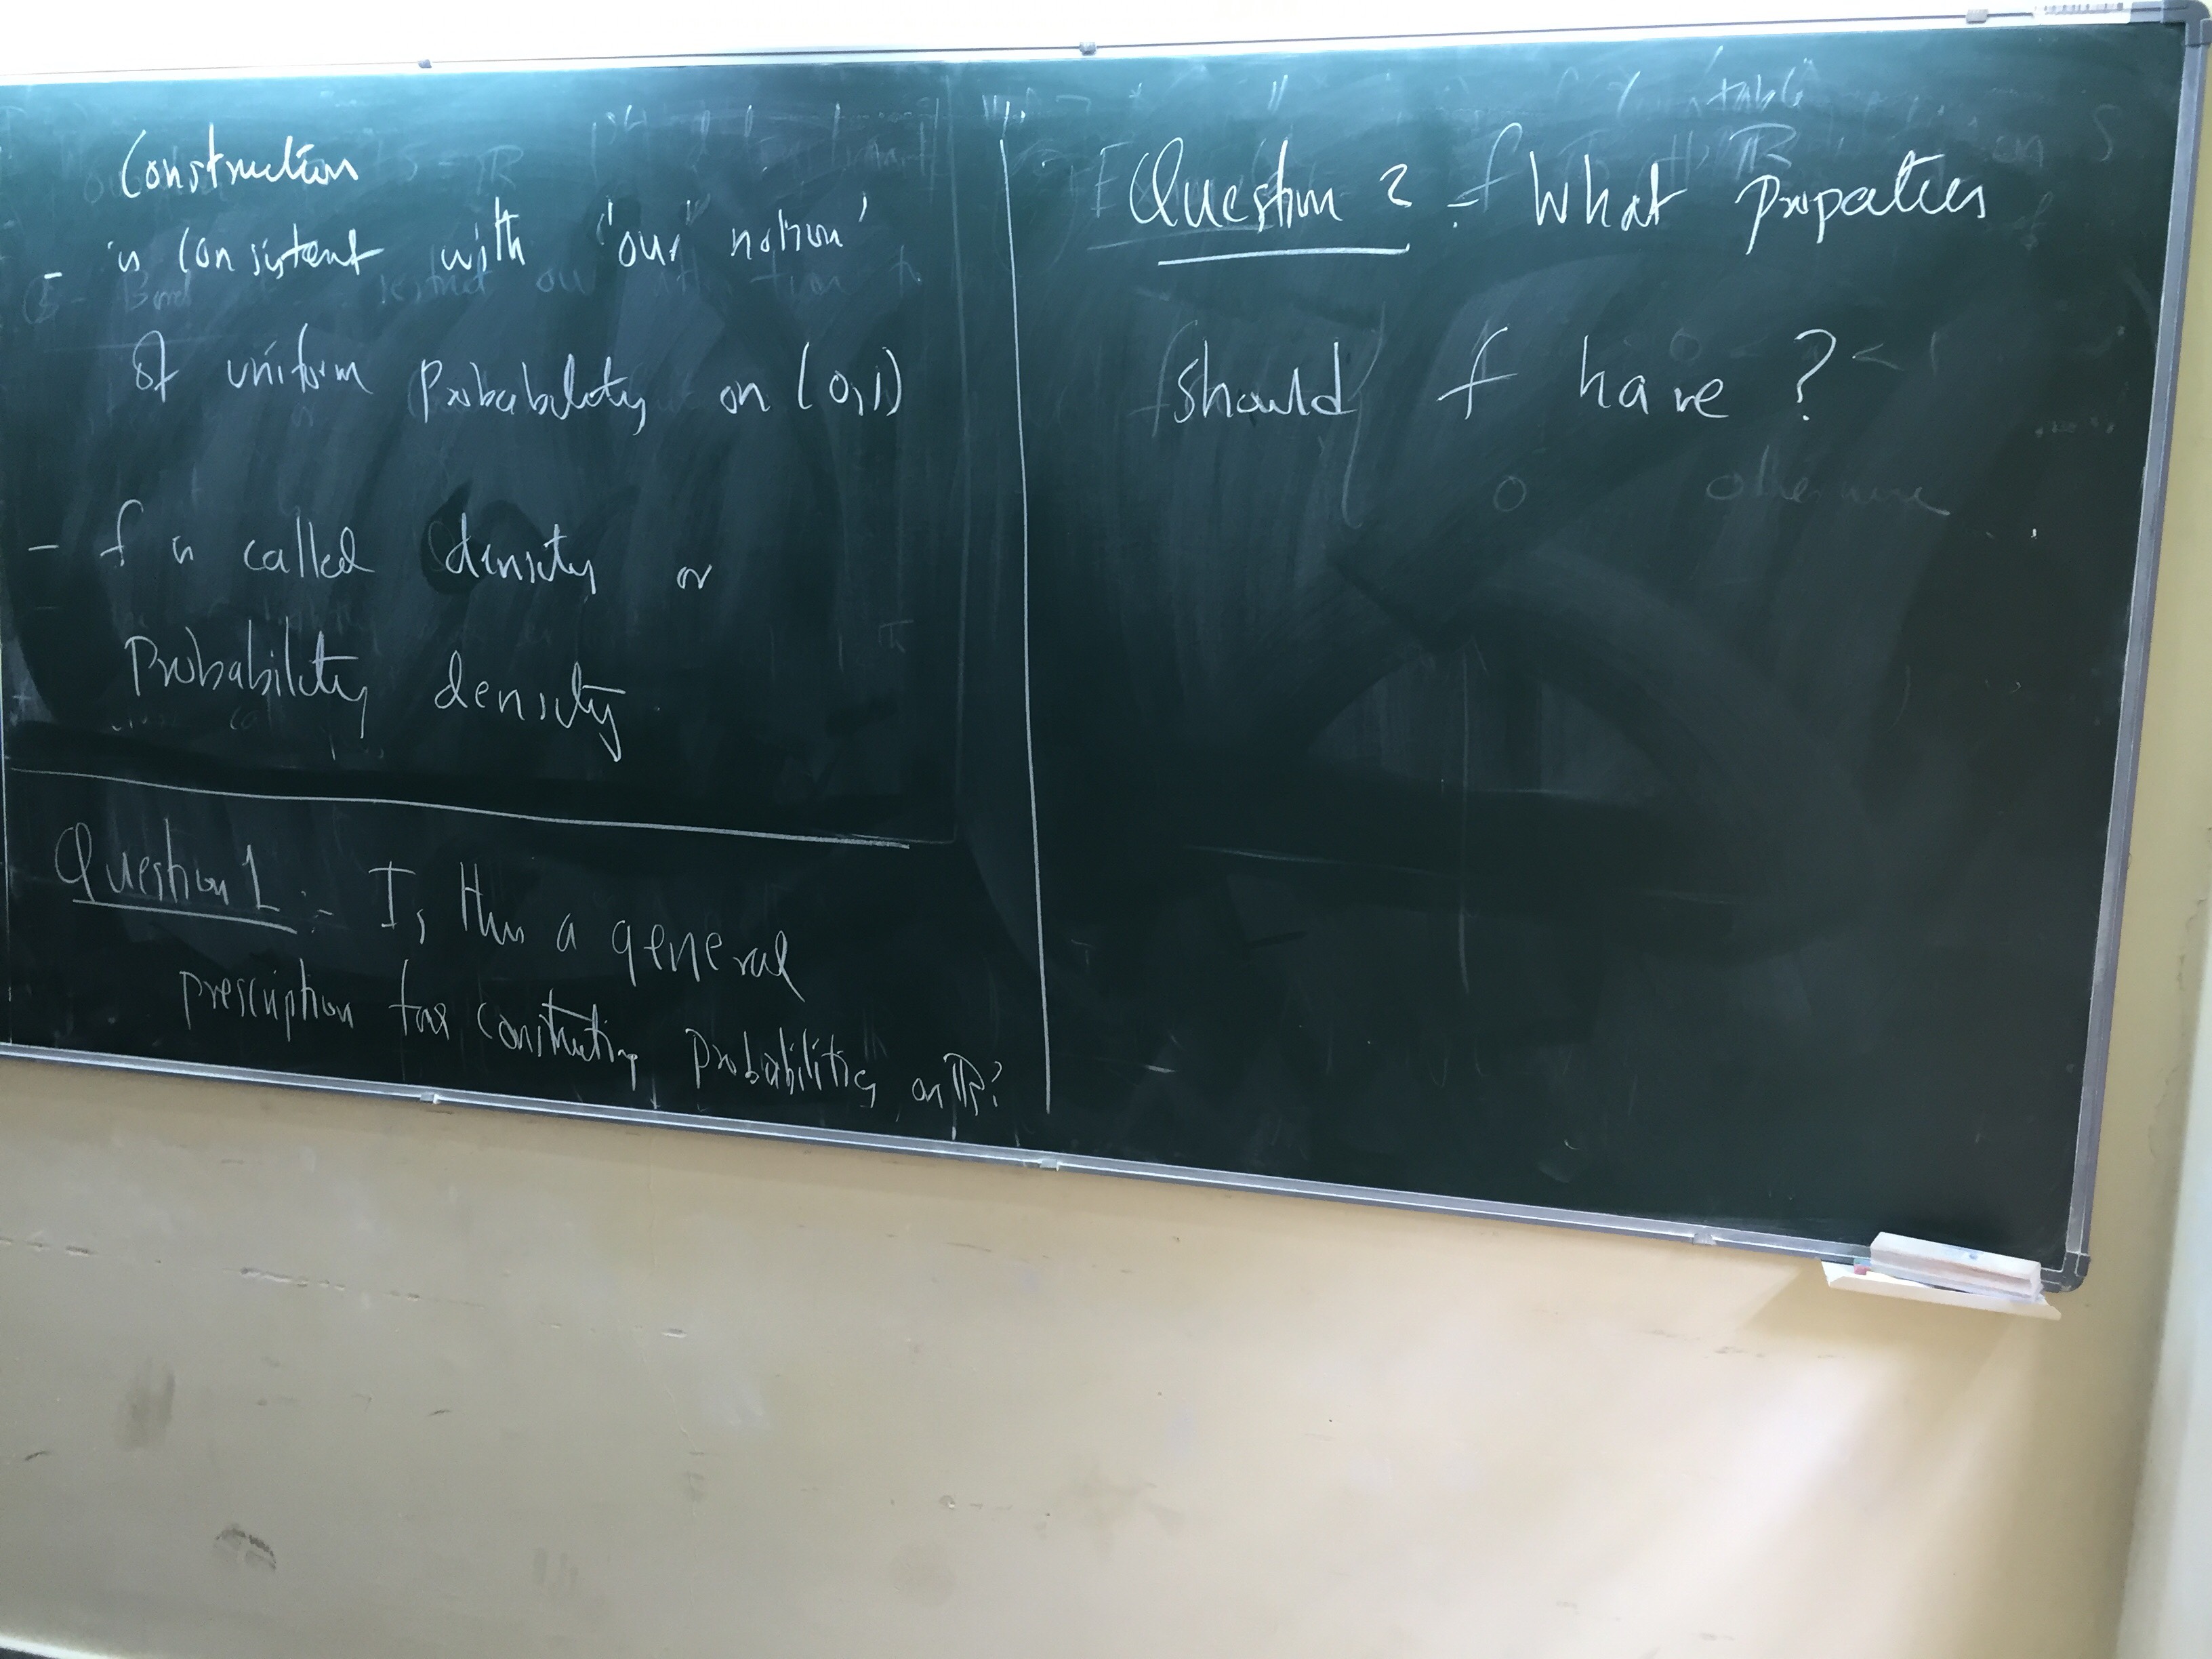 Construction
is consistent with "our" notion'
of uniform probability on (0,1)
- f is called density or
Probability density
Question 1 :- Is this a general
prescription for constructing probabilities on ℝ?
Question 2 :- What properties
should f have ?
0 otherwise